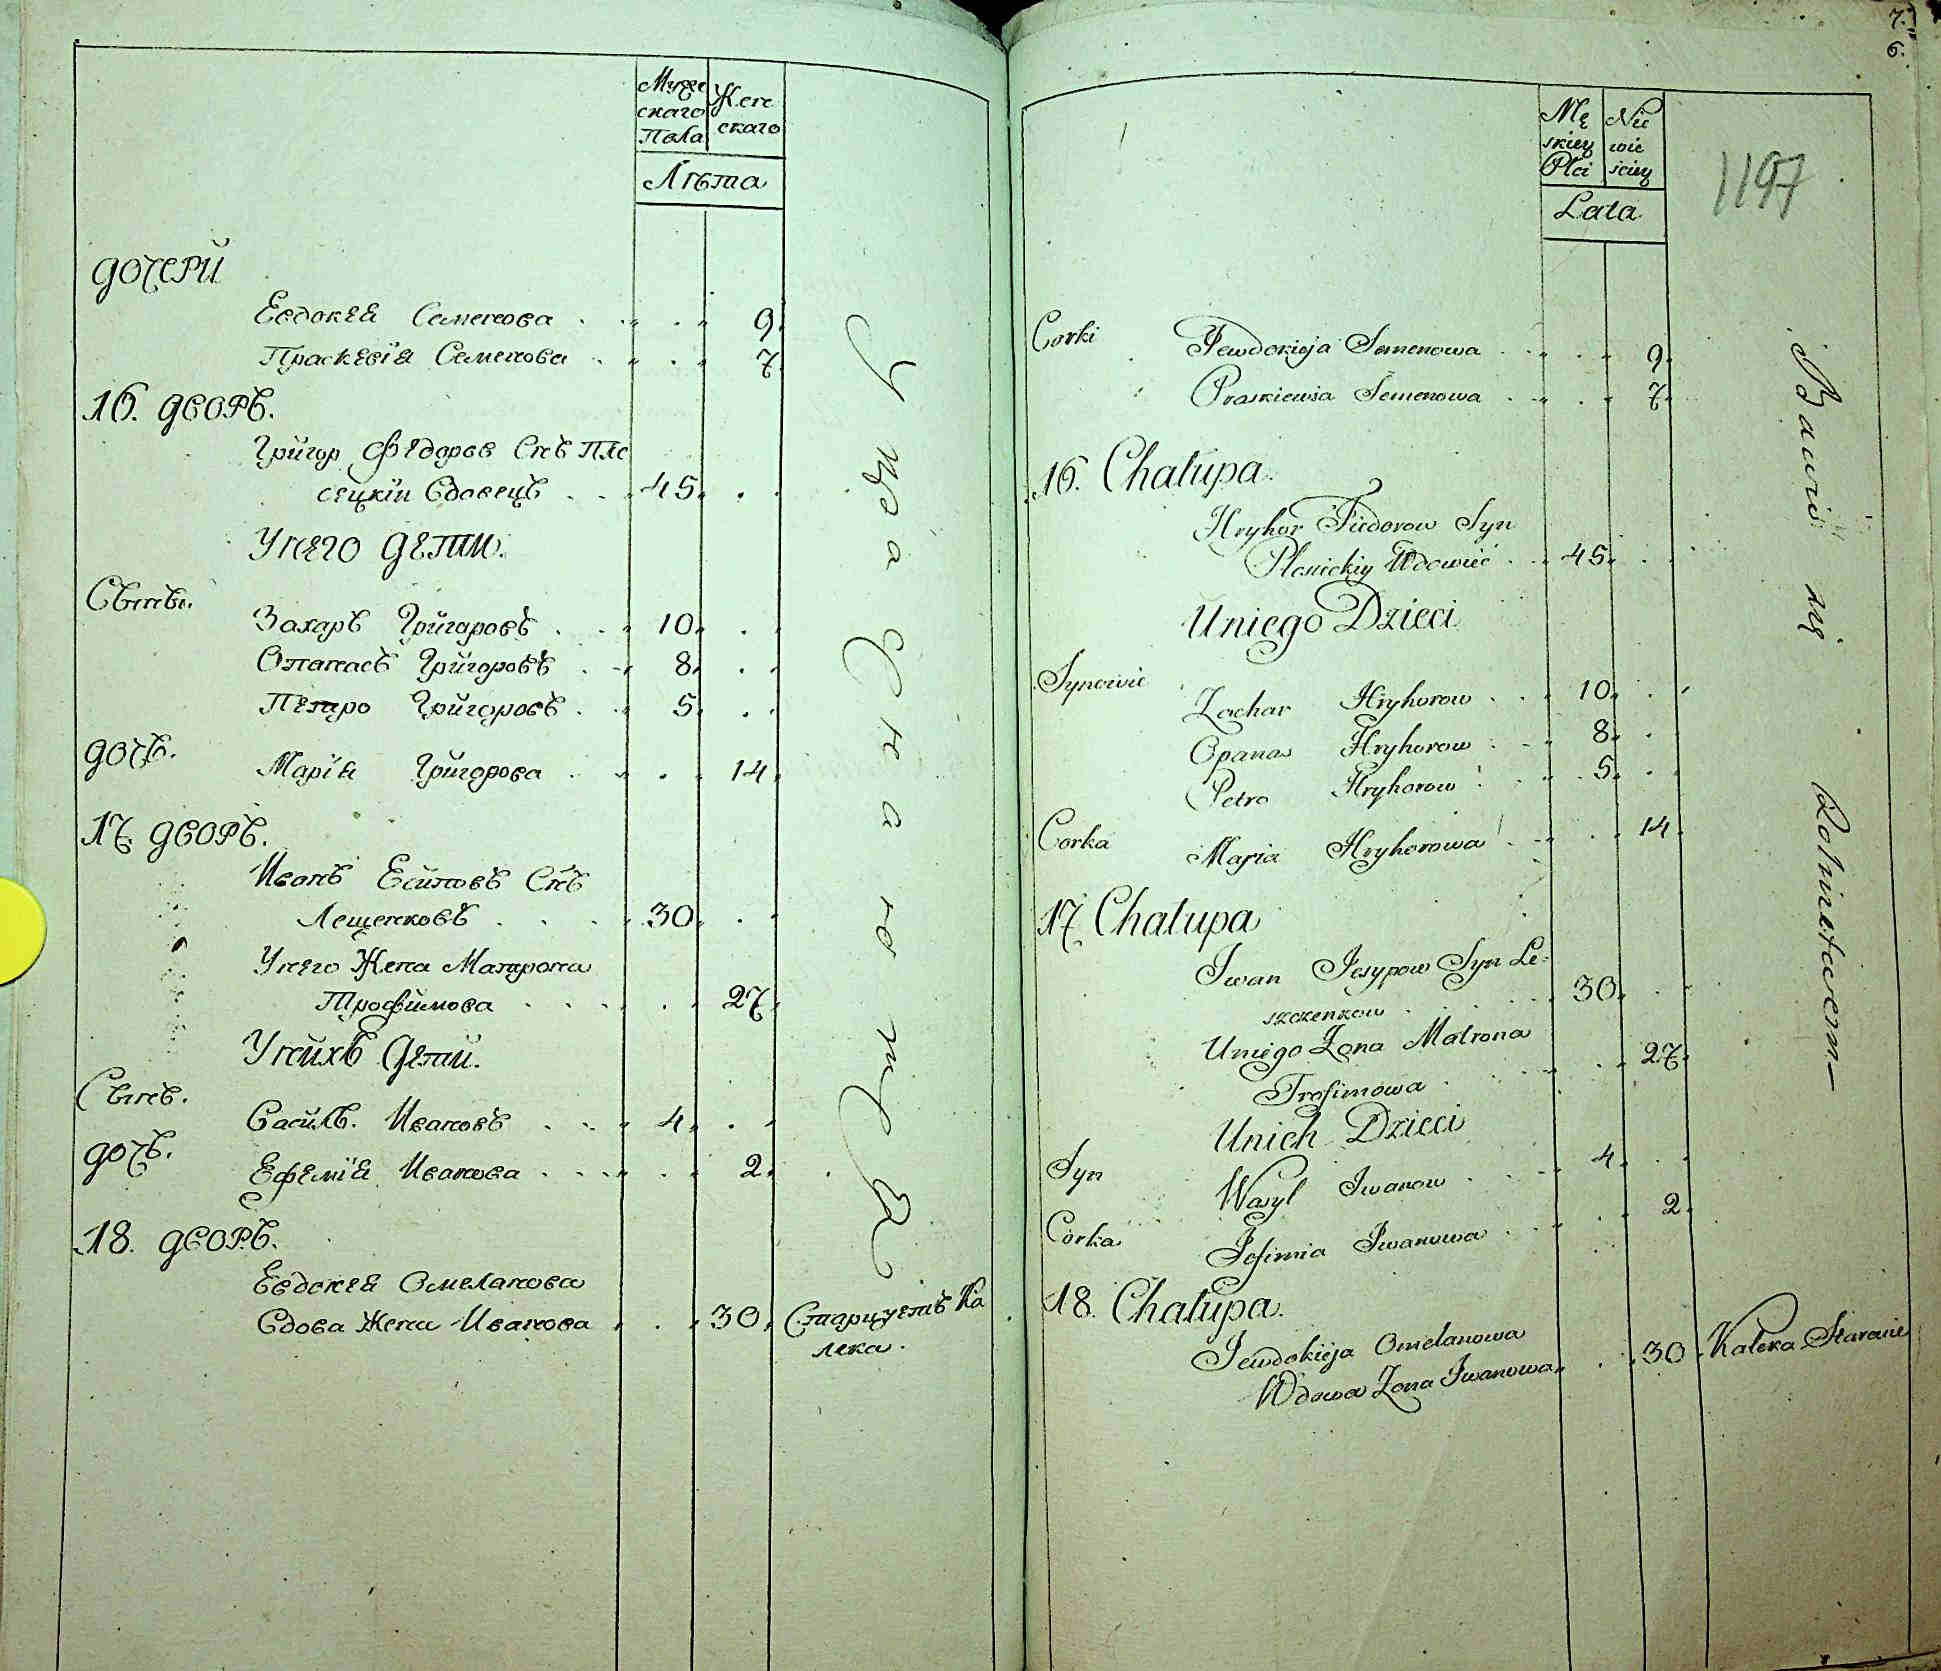 Мужескаго Пола
Женскаго
Лѣта
дочери
Евдокея Семенова 9
Праскевія Семенова 7
16. дворъ.
Григор Федоров Снъ Пле
сецкій вдовецъ 45
У него дети.
Сынъ.
Захаръ Григоровъ 10
Опанасъ Григоровъ 8
Петро Григоровъ 5
дочь.
Марія Григорова 14
17. дворъ.
Иванъ Есиповъ Снъ
Лещенковъ 30
У него Жена Матрона
Трофимова 27
У нихъ Дети.
Сынъ.
Василь Ивановъ 4
дочь.
Ефемія Иванова 2
18. дворъ.
Евдокея Омеланова
Вдова Жена Иванова 30 Старцуетъ Ка
лека.
7.
6.
1197
Męskiey Płci
Niewieściey
Lata
Corki
Jewdokieja Semenowa 9
Praskiewia Semenowa 7
16. Chałupa.
Hryhor Fiedorow Syn
Plesieckiy Wdowiec 45
U niego Dzieci
Synowie
Zachar Hryhorow 10
Opanas Hryhorow 8
Petro Hryhorow 5
Corka
Marja Hryhorowa 14
17 Chałupa
Iwan Jesypow Syn Le-
szczenkow 30
U niego Zona Matrona
Trofimowa 27
U nich Dzieci
Syn
Wasyl Iwanow 4
Corka
Jefimia Iwanowa 2
18. Chałupa.
Jewdokieja Omelanowa
Wdowa Zona Iwanowa 30 Kaleka
Bawio się Rolnictwem